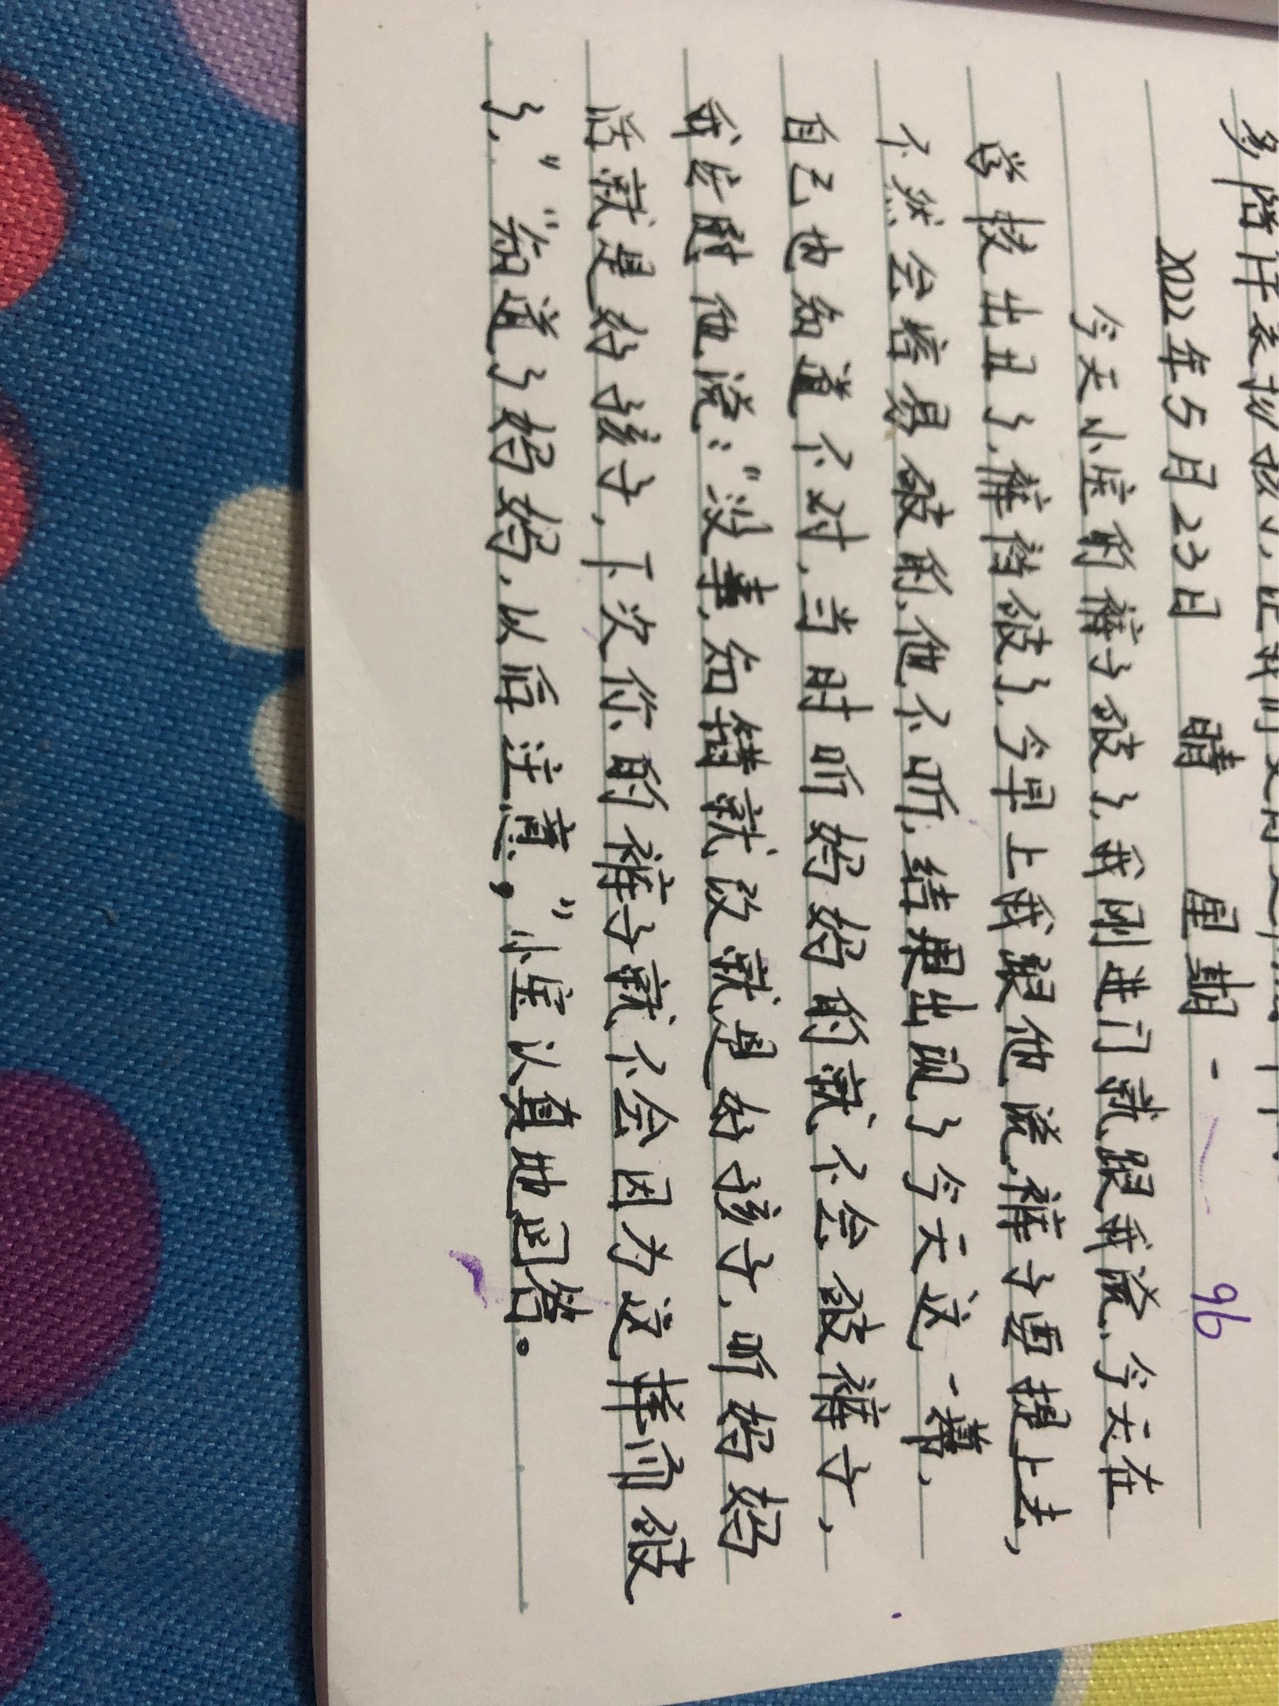 2022年5月23日 晴 星期一 96
今天小宝的裤子破了,我刚进门就跟我说,今天在
学校出丑了,裤裆破了,今早上我跟他说,裤子要提上去,
不然会容易破的,他不听,结果出现了今天这一幕,
自己也知道不对,当时听妈妈的就不会破裤子,
我安慰他说:"没事,知错就改就是好孩子,听妈妈
话就是好孩子,下次你的裤子就不会因为这样而破
了,""知道了妈妈,以后注意,"小宝认真地回答。